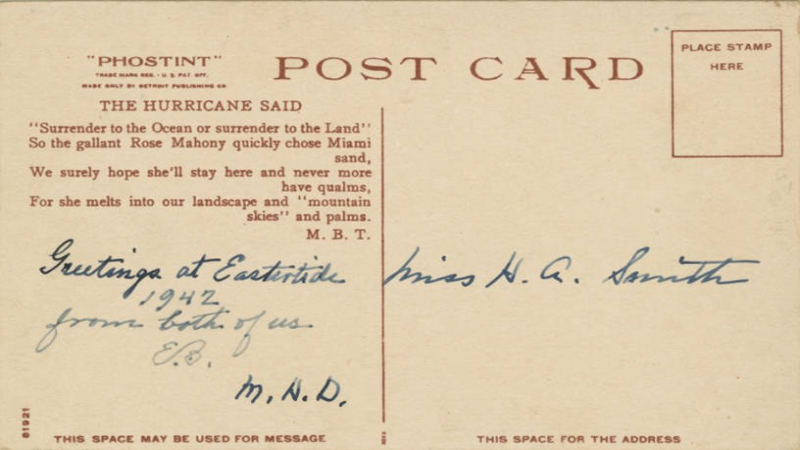 "PHOSTINT"
TRADE MARK REG. - U.S. PAT. OFF.
MADE ONLY BY DETROIT PUBLISHING CO.
POST CARD
PLACE STAMP
HERE
THE HURRICANE SAID
"Surrender to the Ocean or surrender to the Land"
So the gallant Rose Mahony quickly chose Miami
sand,
We surely hope she'll stay here and never more
have qualms,
For she melts into our landscape and "mountain
skies" and palms.
M. B. T.
Greetings at Eastertide
1942
from both of us
E.B.
M. H. D.
Miss H. A. Smith
81921
THIS SPACE MAY BE USED FOR MESSAGE
THIS SPACE FOR THE ADDRESS